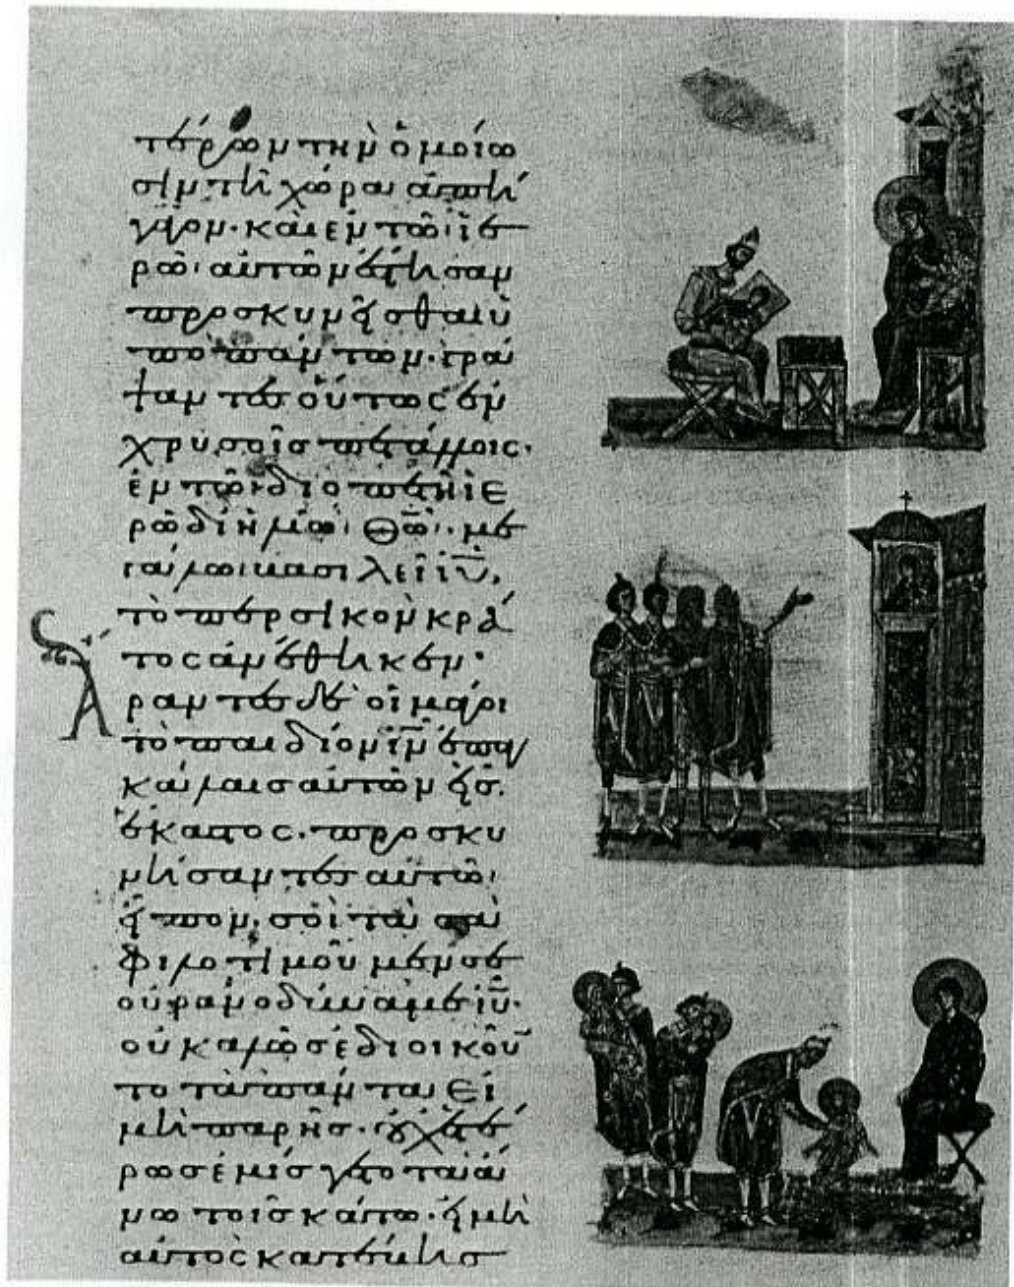 τέρων τὴν ὁμοίω
σιν τῆ χώρα ἀπηγ
γάγον· καὶ ἐν τῶ ἱε
ρῶ· αὐτῶν ἔθησαν
προσκυνεῖσθαι ὑ
πὸ πάντων· γρά
ψαντες οὕτως ἐν
χρυσοῖς πετάλλοις·
ἐν τῶ διοπετεῖ ἱε
ρῶ διῒ ἡλίω· θῶ· με
γάλω βασιλεῖ ἰῦ,
τὸ περσικὸν κρά
τος ἀνέθηκεν·
Ἄραντες δὲ οἱ μάγοι
τὸ παιδίον ἐν ἐπαγ
κάλαις αὐτῶν εἷς
ἕκαστος· προσκυ
νήσαντες αὐτῶ·
εἶπον· σοὶ τὰ σὰ
φιλοτιμοῦμεν σε
οὐρανοδύναμε ἰῦ·
οὐ καλῶς ἐδιοικοῦ
το τὰ πάντα εἰ
μὴ παρῆς· οὐχ ἑτέ
ρως ἐμίσγετο τὰ ἄ
νω τοῖς κάτω· εἰ μὴ
αὐτὸς κατέβης